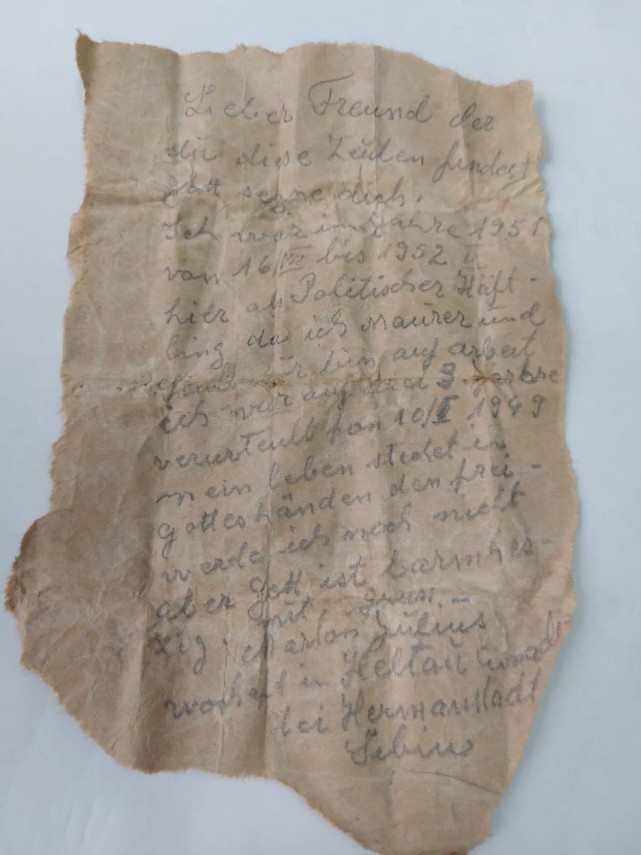 Lieber Freund der
dü diese Zeilen findest
Gott segne dich.
Ich war im Jahre 1951
von 16 bis 1952
hier als Politischer Häft-
ling da ich Maurer und
bin auf arbeit
ich war auf 3 Jahre
verurteult fon 10/I 1949
mein leben stedet in
gottes händen den frei-
werde ich noch nicht
aber Gott ist barmhes-
zig. mit grus. -
Marton Jülius
wohaft in Heltau
bei Hermanstadt
Sebius